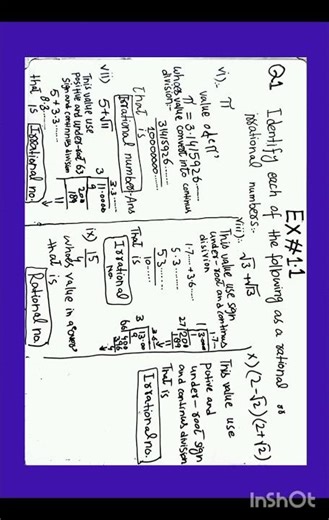 EX#1.1
Q1 Identify each of the following as a rational or
irrational numbers:-
vi):- π
value of "π"
π = 3.1415926......
whoes value convert into continous
division-
31415926......
10000000......
that is
Irrational number. Ans
vii) 5+√11
This value use
positive and under-root
sign and continous division
5+3.3.....
8.3.....
that is Irrational no.
3.3.....
3 11.0000
9
63 200
189
11
viii) √3+√13
This value use sign
under-root and continous
division
1.7....+3.6....
5.3......
53....
10......
That is
Irrational
no.
1.7-
1 3.000
27 200
189
11
3.6-
3 13.00
9
66 400
396
4
ix) 15
4
whoes value in
that is
Rational no.
x) (2-√2)(2+√2)
This value use
potive and
under-root sign
and continous divison
That is
Irrational no.
InShOt